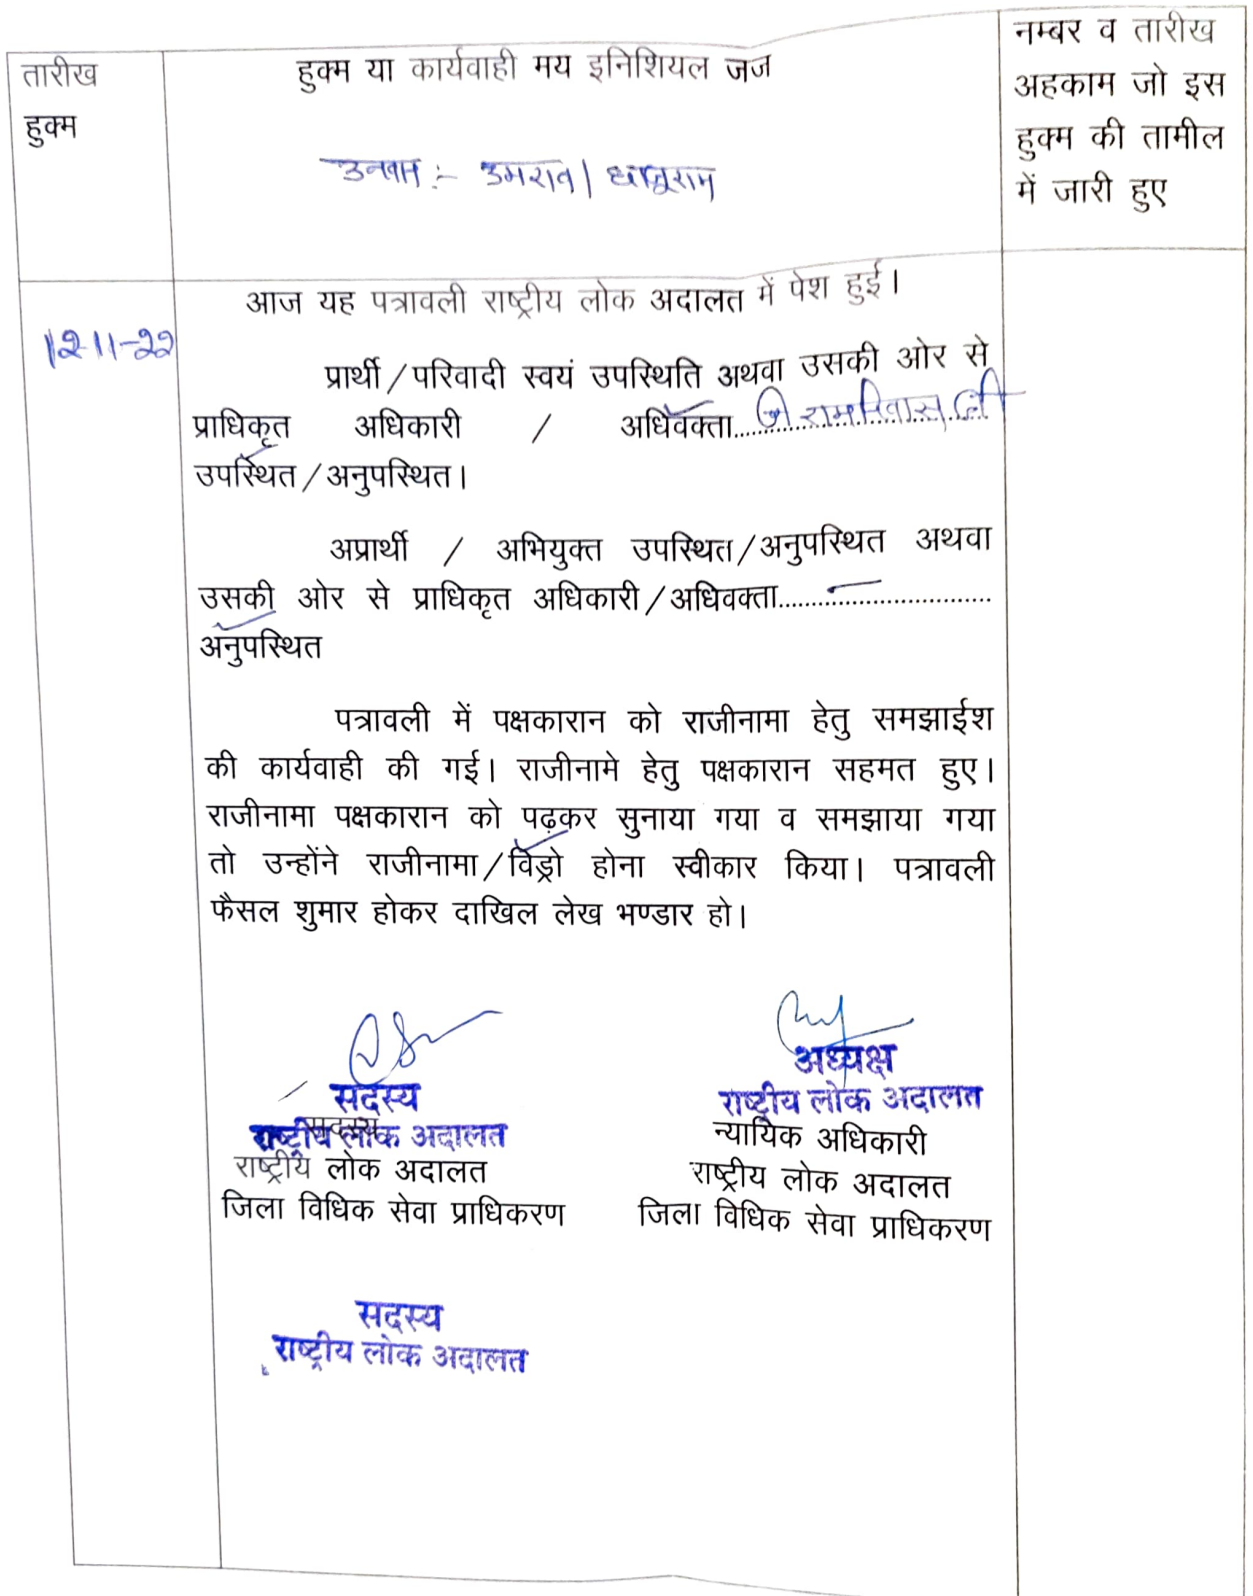 तारीख
हुक्म
हुक्म या कार्यवाही मय इनिशियल जज
उनवान :- उमराव / धानूराम
नम्बर व तारीख
अहकाम जो इस
हुक्म की तामील
में जारी हुए
12-11-22
आज यह पत्रावली राष्ट्रीय लोक अदालत में पेश हुई।
प्रार्थी/परिवादी स्वयं उपस्थिति अथवा उसकी ओर से
प्राधिकृत अधिकारी / अधिवक्ता.....श्री रामनिवास जी
उपस्थित/अनुपस्थित।
अप्रार्थी / अभियुक्त उपस्थित/अनुपस्थित अथवा
उसकी ओर से प्राधिकृत अधिकारी/अधिवक्ता..............................
अनुपस्थित
पत्रावली में पक्षकारान को राजीनामा हेतु समझाईश
की कार्यवाही की गई। राजीनामे हेतु पक्षकारान सहमत हुए।
राजीनामा पक्षकारान को पढ़कर सुनाया गया व समझाया गया
तो उन्होंने राजीनामा/विड्रो होना स्वीकार किया। पत्रावली
फैसल शुमार होकर दाखिल लेख भण्डार हो।
सदस्य
राष्ट्रीय लोक अदालत
सदस्य
राष्ट्रीय लोक अदालत
जिला विधिक सेवा प्राधिकरण
अध्यक्ष
राष्ट्रीय लोक अदालत
न्यायिक अधिकारी
राष्ट्रीय लोक अदालत
जिला विधिक सेवा प्राधिकरण
सदस्य
राष्ट्रीय लोक अदालत